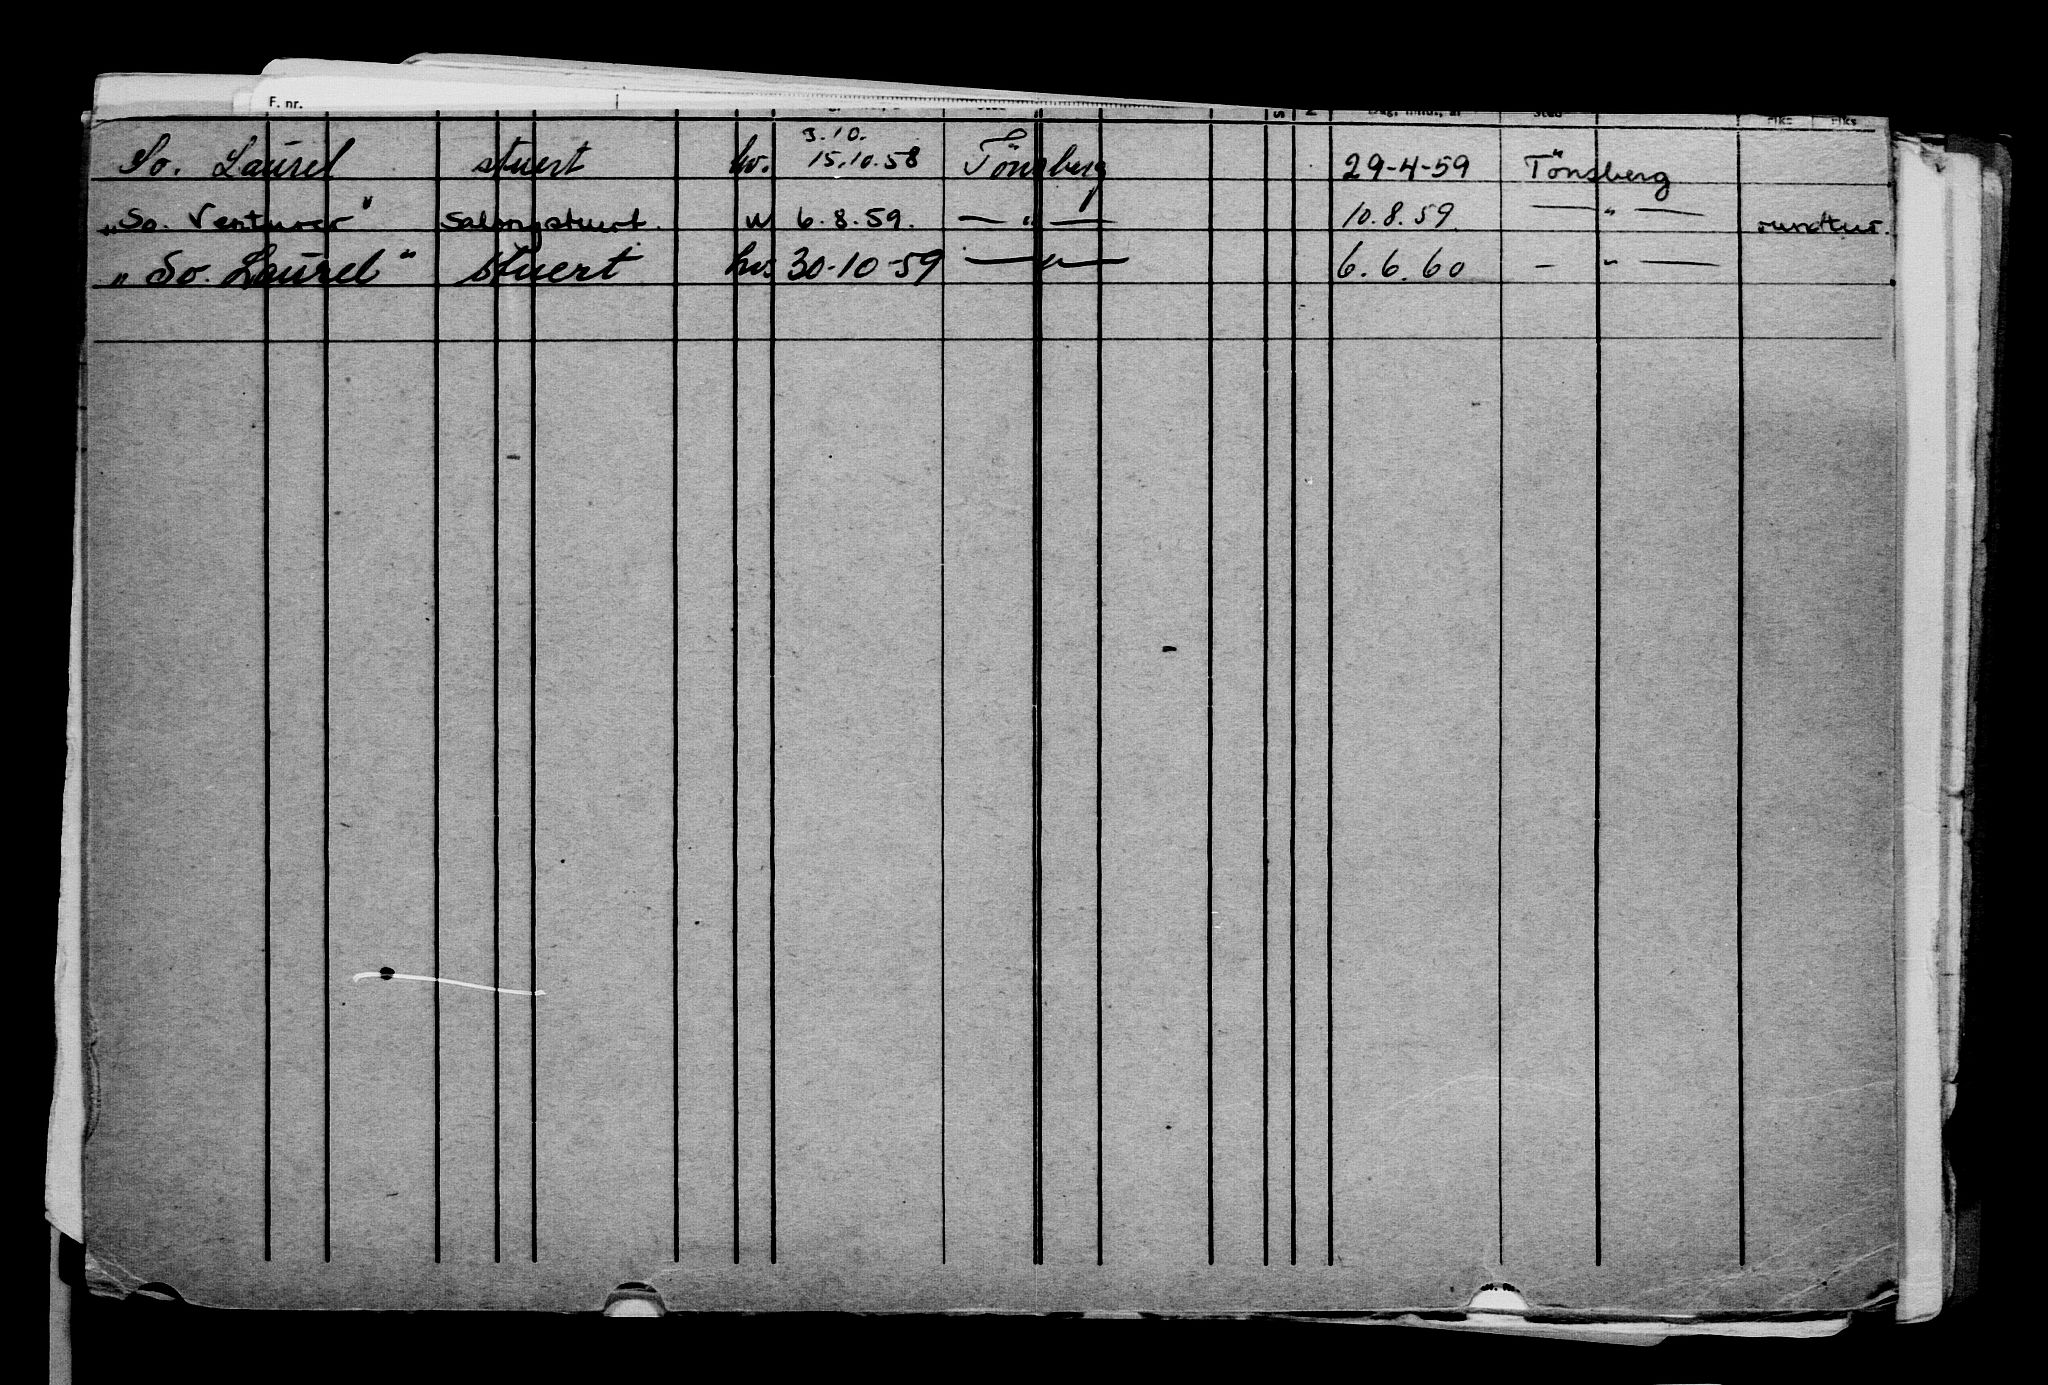 F. nr.
3.10.
So. Laurel stuert hv. 15.10.58 Tönsberg 29-4-59 Tönsberg
„So. Venturer" Salongstuert. u 6.8.59. — " — 10.8.59 — " — rundtur.
„So. Laurel" stuert hvs 30-10-59 — " — 6.6.60 — " —